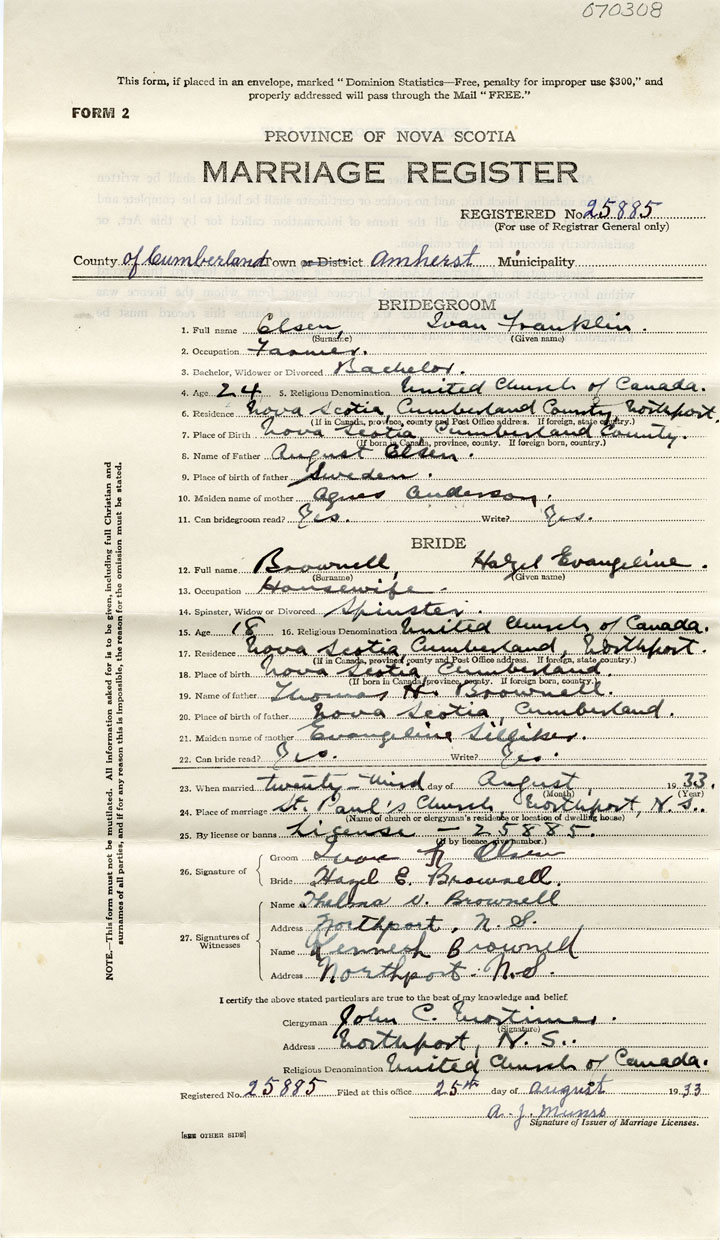 070308
This form, if placed in an envelope, marked "Dominion Statistics—Free, penalty for improper use $300," and
properly addressed will pass through the Mail "FREE."
FORM 2
PROVINCE OF NOVA SCOTIA
MARRIAGE REGISTER
REGISTERED No. 25885
(For use of Registrar General only)
County of Cumberland Town or District Amherst Municipality
BRIDEGROOM
1. Full name Olsen, Ivan Franklin.
(Surname) (Given name)
2. Occupation Farmer.
3. Bachelor, Widower or Divorced Bachelor.
4. Age 24 5. Religious Denomination United Church of Canada.
6. Residence Nova Scotia, Cumberland County, Northport.
(If in Canada, province, county and Post Office address. If foreign, state country.)
7. Place of Birth Nova Scotia, Cumberland County.
(If born in Canada, province, county. If foreign born, country.)
8. Name of Father August Olsen.
9. Place of birth of father Sweden.
10. Maiden name of mother Agnes Anderson.
11. Can bridegroom read? Yes. Write? Yes.
BRIDE
12. Full name Brownell, Hazel Evangeline.
(Surname) (Given name)
13. Occupation Housewife.
14. Spinster, Widow or Divorced Spinster.
15. Age 18 16. Religious Denomination United Church of Canada.
17. Residence Nova Scotia, Cumberland, Northport.
(If in Canada, province, county and Post Office address. If foreign, state country.)
18. Place of birth Nova Scotia, Cumberland.
(If born in Canada, province, county. If foreign born, country.)
19. Name of father Thomas H. Brownell.
20. Place of birth of father Nova Scotia, Cumberland.
21. Maiden name of mother Evangeline Silliker.
22. Can bride read? Yes. Write? Yes.
23. When married twenty-third day of August, 1933.
(Month) (Year)
24. Place of marriage St. Paul's Church, Northport, N.S..
(Name of church or clergyman's residence or location of dwelling house)
25. By license or banns License — 25885.
(If by licence, give number.)
26. Signature of
Groom Ivan F. Olsen
Bride Hazel E. Brownell.
27. Signatures of Witnesses
Name Thelma V. Brownell
Address Northport, N.S.
Name Kenneth Brownell
Address Northport. N.S.
I certify the above stated particulars are true to the best of my knowledge and belief.
Clergyman John C. Mortimer.
(Signature)
Address Northport, N.S..
Religious Denomination United Church of Canada.
Registered No. 25885 Filed at this office 25th day of August 1933
A. J. Munro
Signature of Issuer of Marriage Licenses.
[SEE OTHER SIDE]
NOTE.—This form must not be mutilated. All information asked for is to be given, including full Christian and
surnames of all parties, and if for any reason this is impossible, the reason for the omission must be stated.